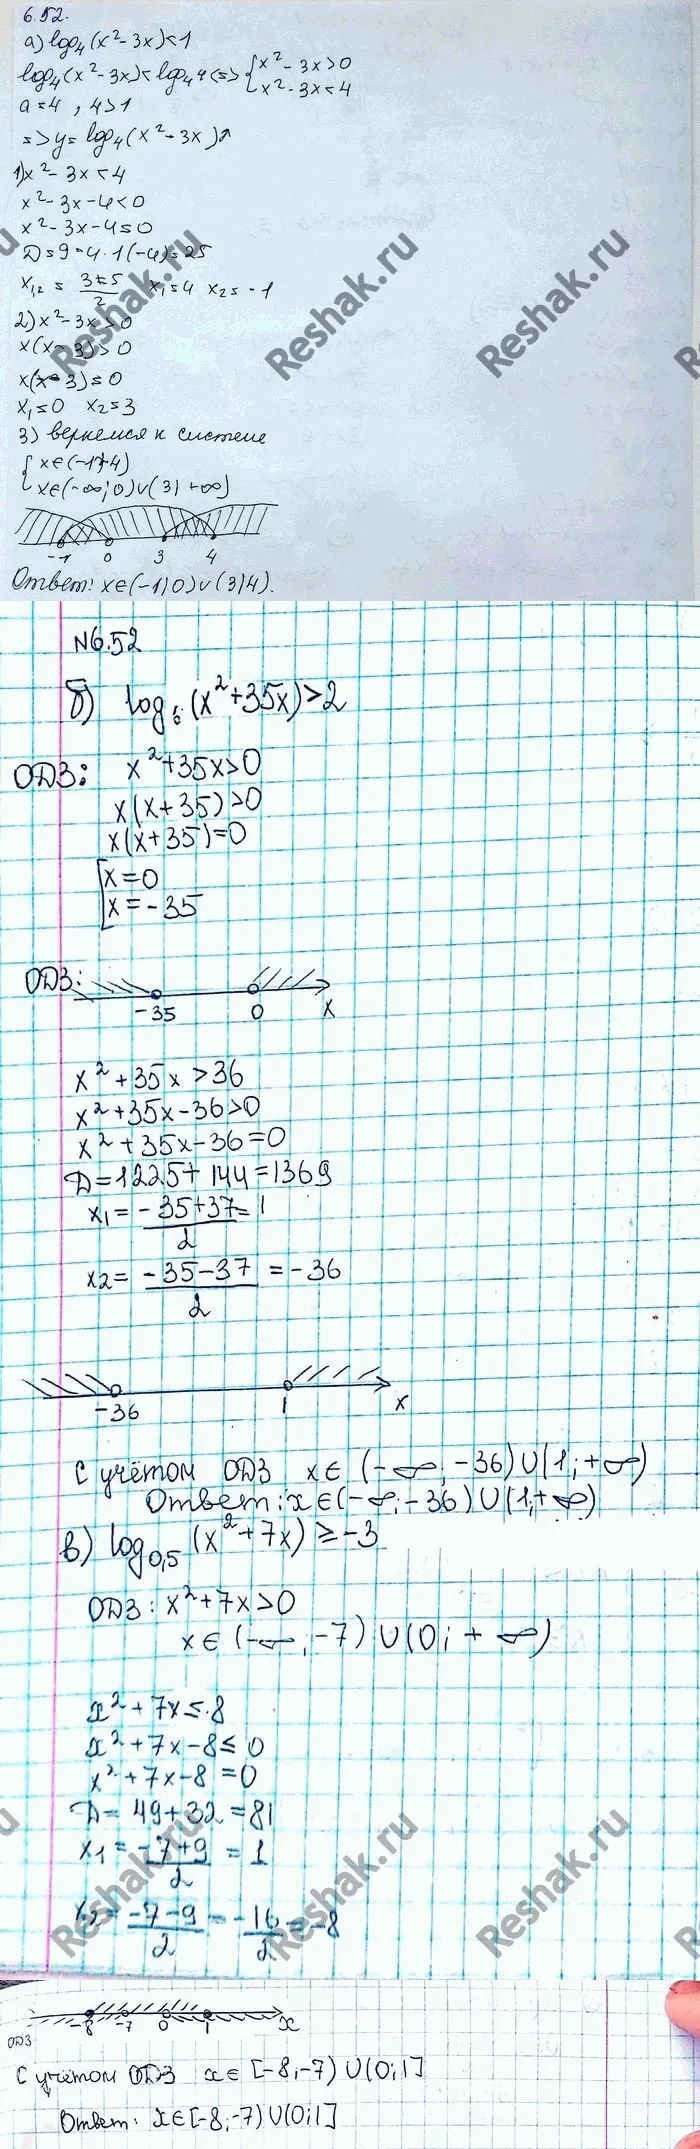 6.52.
а) log₄(x²-3x)<1
log₄(x²-3x)<log₄4 <=> { x²-3x>0
x²-3x<4
a=4, 4>1
=> y=log₄(x²-3x)↑
1) x²-3x<4
x²-3x-4<0
x²-3x-4=0
D=9-4·1(-4)=25
x₁,₂ = (3±5)/2 x₁=4 x₂=-1
2) x²-3x>0
x(x-3)>0
x(x-3)=0
x₁=0 x₂=3
3) вернемся к системе
{ x∈(-1;4)
x∈(-∞;0)∪(3;+∞)
-1 0 3 4
Ответ: x∈(-1;0)∪(3;4).
№6.52
б) log₆(x²+35x)>2
ОДЗ: x²+35x>0
x(x+35)>0
x(x+35)=0
[ x=0
x=-35
ОДЗ:
-35 0 x
x²+35x>36
x²+35x-36>0
x²+35x-36=0
D=1225+144=1369
x₁=(-35+37)/2=1
x₂=(-35-37)/2=-36
-36 1 x
С учётом ОДЗ x∈(-∞;-36)∪(1;+∞)
Ответ: x∈(-∞;-36)∪(1;+∞)
в) log₀,₅(x²+7x)≥-3
ОДЗ: x²+7x>0
x∈(-∞;-7)∪(0;+∞)
x²+7x≤8
x²+7x-8≤0
x²+7x-8=0
D=49+32=81
x₁=(-7+9)/2=1
x₂=(-7-9)/2=-16/2=-8
-8 -7 0 1 x
ОДЗ
С учётом ОДЗ x∈[-8;-7)∪(0;1]
Ответ: x∈[-8;-7)∪(0;1]
Reshak.ru
Reshak.ru
Reshak.ru
Reshak.ru
Reshak.ru
Reshak.ru